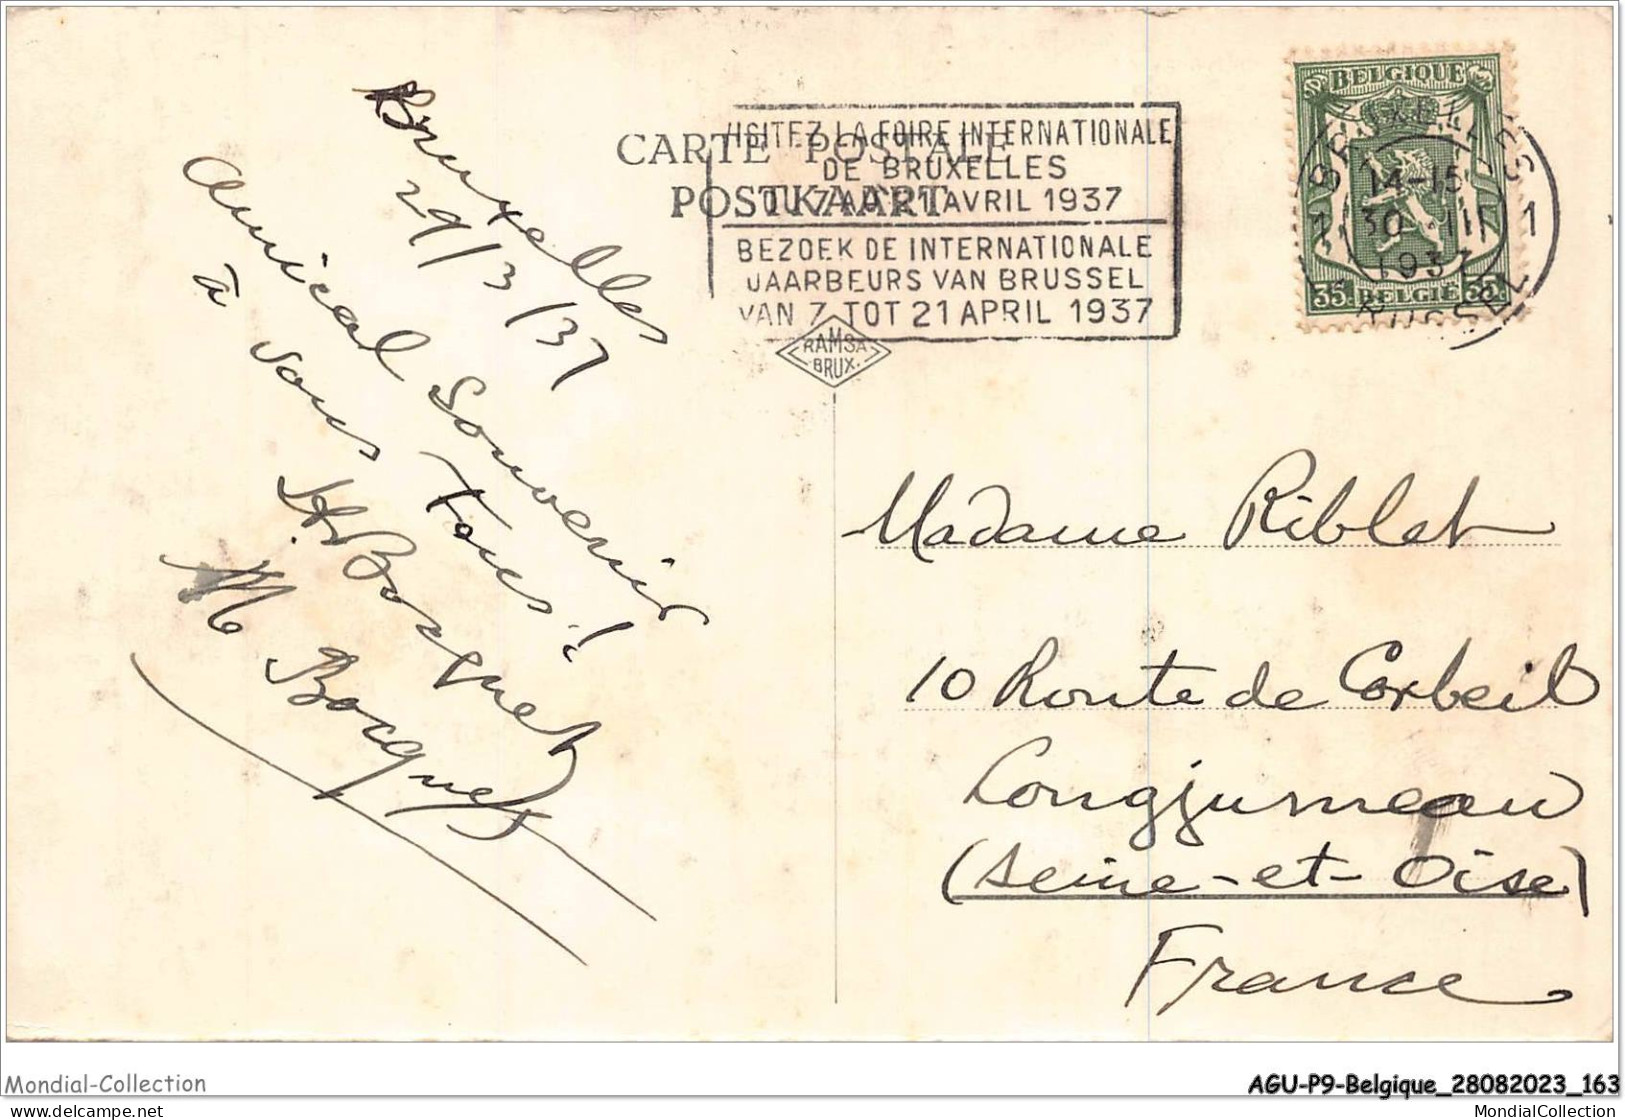 Bruxelles
29/3/37
Amical Souvenir
à vous tous!
H Bocquet
M Bocquet
CARTE POSTALE
POSTKAART
VISITEZ LA FOIRE INTERNATIONALE
DE BRUXELLES
DU 7 AU 21 AVRIL 1937
BEZOEK DE INTERNATIONALE
JAARBEURS VAN BRUSSEL
VAN 7 TOT 21 APRIL 1937
RAMSA
BRUX.
BELGIQUE
35c BELGIË 35c
BRUXELLES
1 1
14-15
30-III
1937
BRUSSEL
Madame Riblet
10 Route de Corbeil
Longjumeau
(Seine-et-Oise)
France
Mondial-Collection
AGU-P9-Belgique_28082023_163
MondialCollection